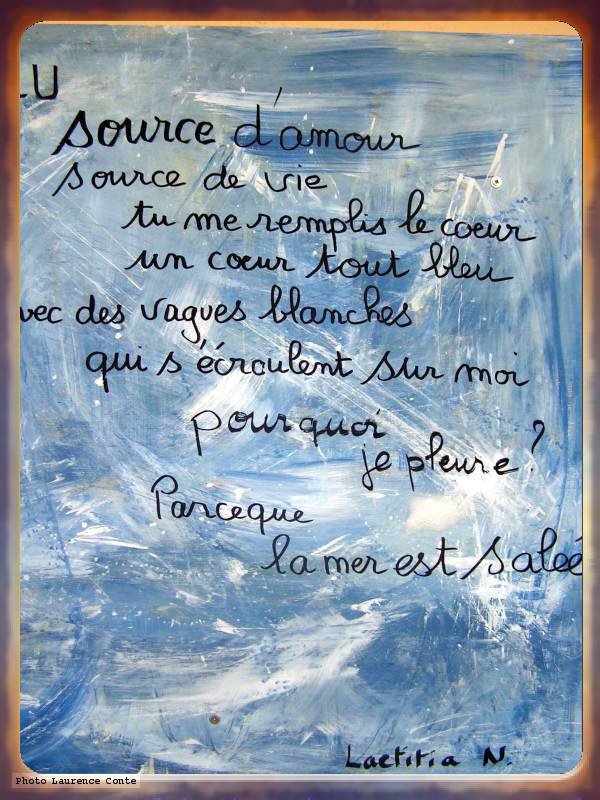 U
source d'amour
source de vie
tu me remplis le coeur
un coeur tout bleu
vec des vagues blanches
qui s'écroulent sur moi
pourquoi
je pleure ?
Parceque
la mer est salée
Laetitia N.
Photo Laurence Conte